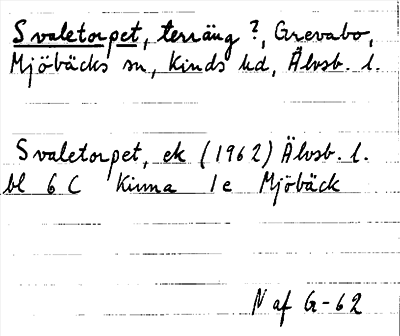 Svaletorpet, terräng ?, Grevabo,
Mjöbäcks sn, Kinds hd, Älvsb. l.
Svaletorpet, ek (1962) Älvsb. l.
bl 6 C Kinna 1 e Mjöbäck
N af G-62